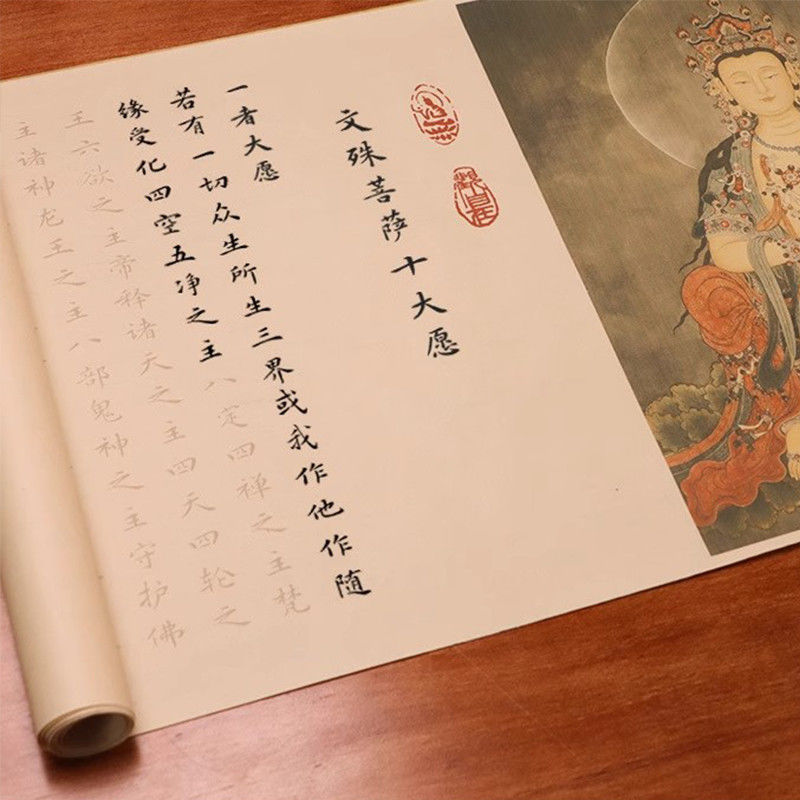 文殊菩萨十大愿
一者大愿
若有一切众生所生三界或我作他作随
缘受化四空五净之主八定四禅之主梵
王六欲之主帝释诸天之主四天四轮之
主诸神龙王之主八部鬼神之主守护佛